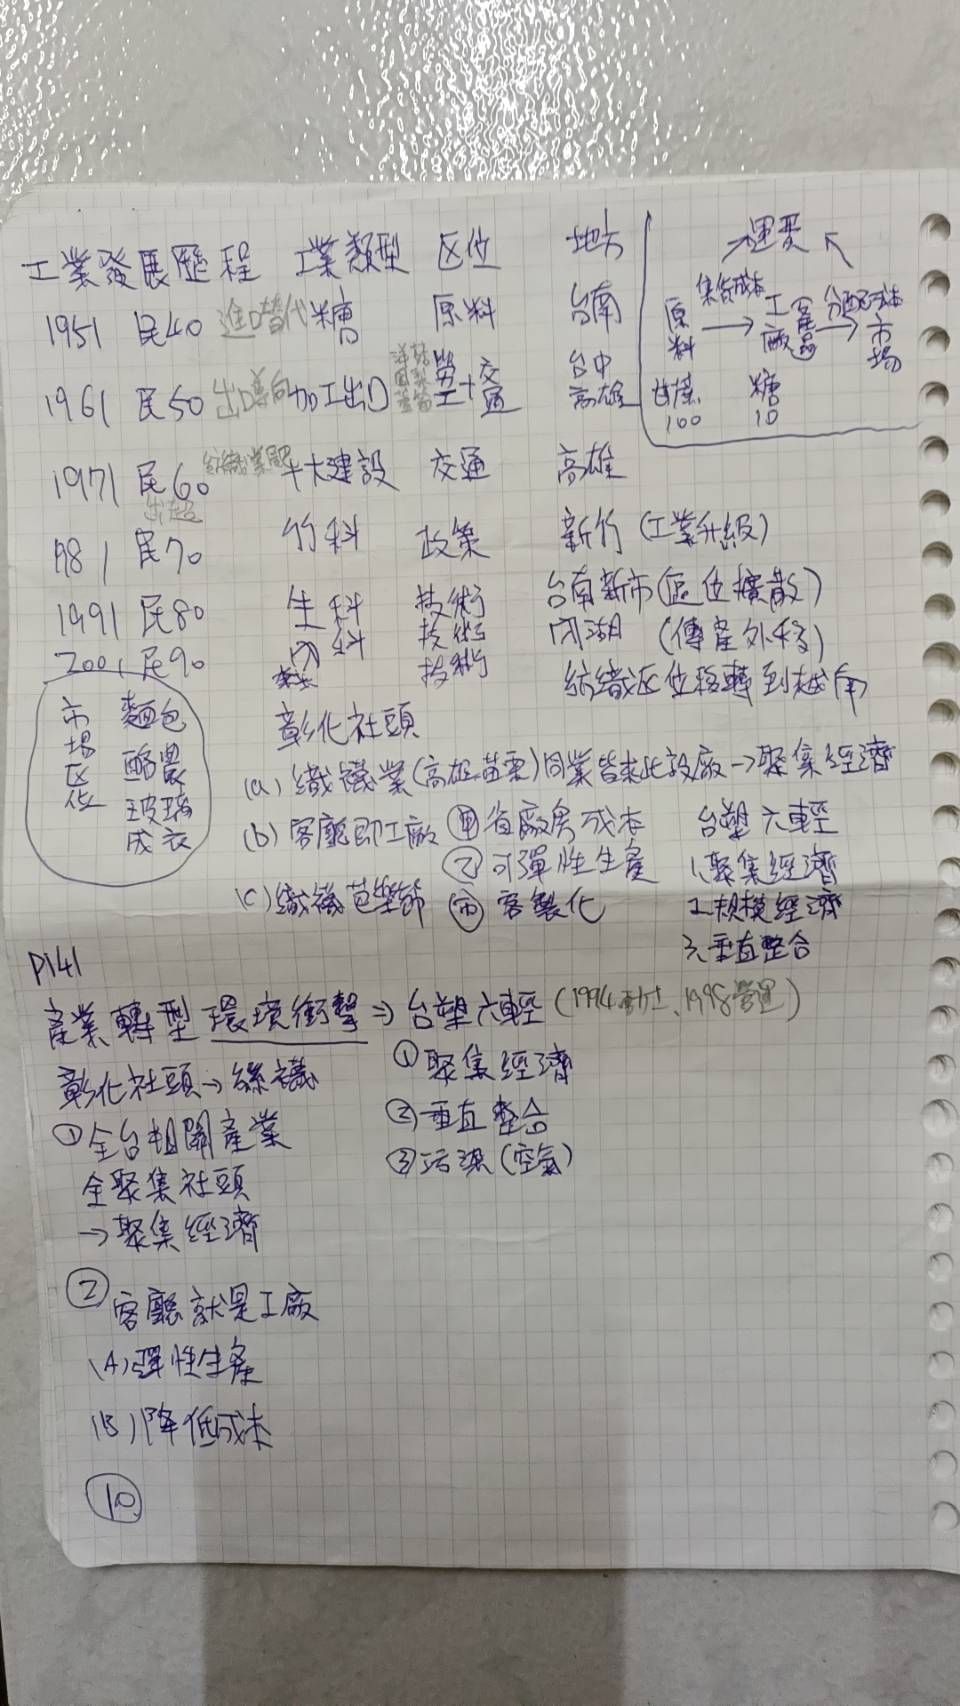 工業發展歷程 工業類型 区位 地方
1951 民40 進口替代 糖 原料 台南
1961 民50 出口導向 加工出口 洋菇 鳳梨 蘆筍 勞工+交通 台中 高雄
1971 民60 紡織業 十大建設 交通 高雄
出超
1981 民70 竹科 政策 新竹(工業升級)
1991 民80 生科 技術 台南新市(區位擴散)
2001 民90 內科 技術 內湖 (傳產外移)
技術 紡織区位移轉到越南
運費
原料 集貨成本 → 工廠 產品 分配成本 → 市場
甘蔗 糖
100 10
市場区位 麵包
酪農
玻璃
成衣
彰化社頭
(a) 織襪業(高雄苗栗)同業皆來此設廠→聚集經濟
(b) 客廳即工廠 甲 省廠房成本
乙 可彈性生產
(c) 織襪芭樂節 丙 客製化
台塑六輕
1、聚集經濟
2、規模經濟
3、垂直整合
P141
產業轉型 環境衝擊 ⇒ 台塑六輕 (1994動土、1998營運)
① 聚集經濟
② 垂直整合
③ 污染(空氣)
彰化社頭→絲襪
① 全台相關產業
全聚集社頭
→聚集經濟
② 客廳就是工廠
(A) 彈性生產
(B) 降低成本
10